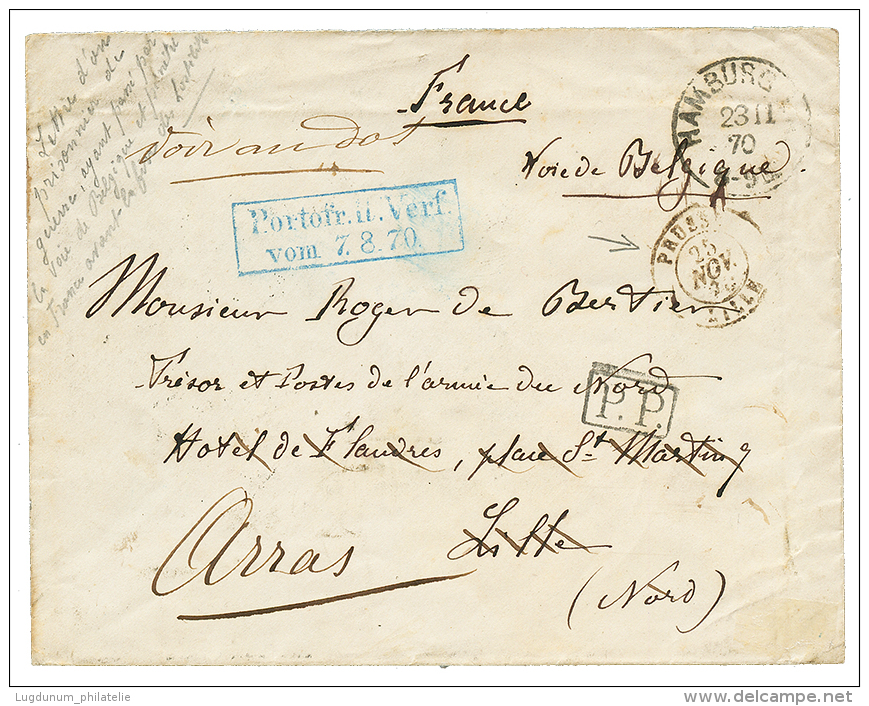 Lettre d'un
prisonnier de
guerre, ayant passé par
la voie de Belgique et
en France avant la fin des
France
Voir au dos
Voie de Belgique
HAMBURG
23 11
70
Portofr. lt. Verf.
vom 7. 8. 70.
PRUSSE
25
NOV.
LILLE
Monsieur Roger de Bertier
Trésor et Postes de l'armée du Nord
P.P.
Hotel de Flandres, place St Martin 7
Arras Lille
(Nord)
Lugdunum_philatelie
delcampe.net